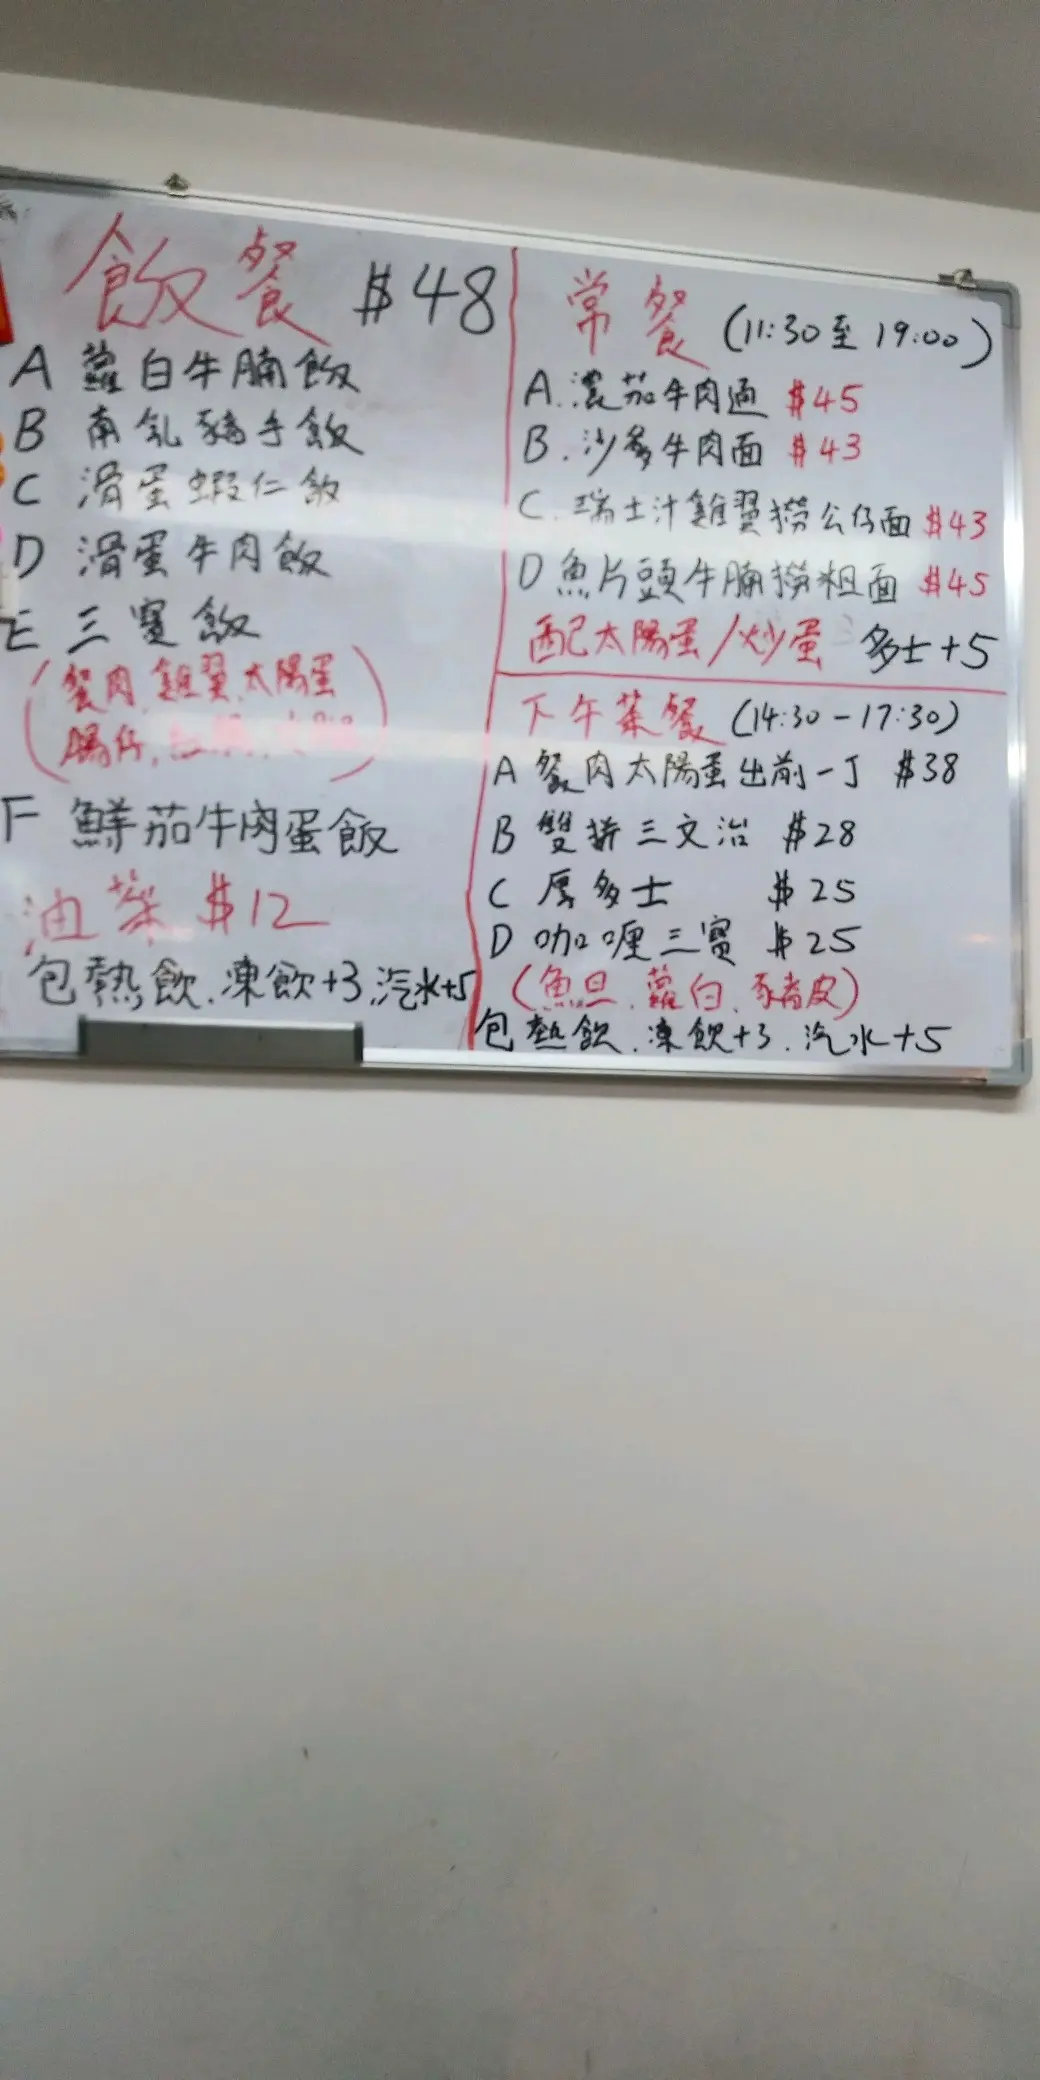 飯餐 $48
A 蘿白牛腩飯
B 南乳豬手飯
C 滑蛋蝦仁飯
D 滑蛋牛肉飯
E 三寶飯
(餐肉, 雞翼, 太陽蛋
腸仔,
F 鮮茄牛肉蛋飯
油菜 $12
包熱飲.凍飲+3.汽水+5
常餐 (11:30至19:00)
A.濃茄牛肉通 $45
B.沙爹牛肉面 $43
C.瑞士汁雞翼撈公仔面 $43
D 魚片頭牛腩撈粗面 $45
配太陽蛋/炒蛋 多士+5
下午茶餐 (14:30-17:30)
A 餐肉太陽蛋出前一丁 $38
B 雙拼三文治 $28
C 厚多士 $25
D 咖喱三寶 $25
(魚旦.蘿白.豬皮)
包熱飲.凍飲+3.汽水+5